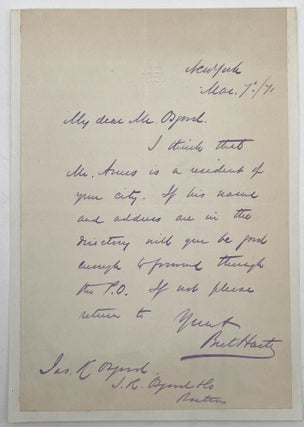 New York
Mar. 7th/71
My dear Mr. Osgood.
I think that
Mr. Ames is a resident of
your city. If his name
and address are in the
directory will you be good
enough to forward through
the P.O. If not please
return to
Yours
Bret Harte
Jas. R. Osgood.
J. R. Osgood & Co
Boston